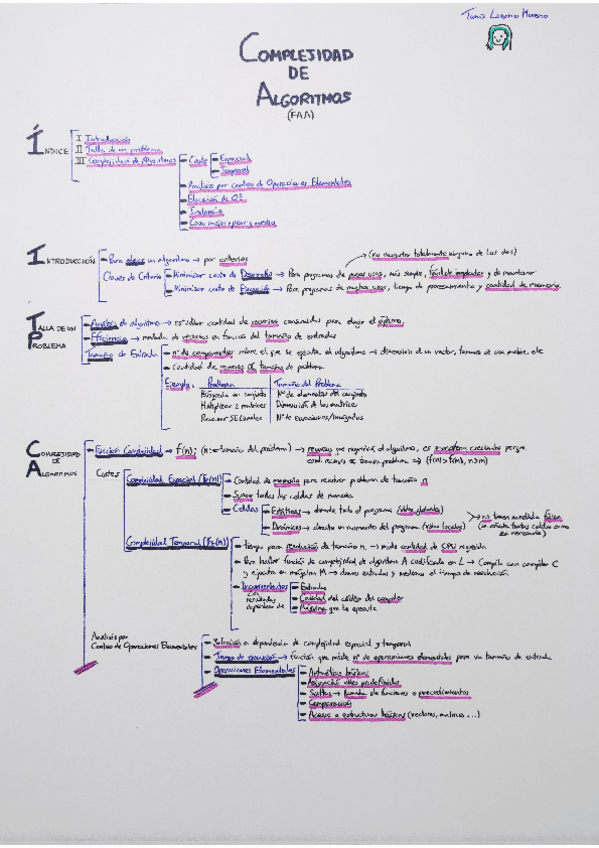 Tania Lozano Moreno
COMPLEJIDAD
DE
ALGORITMOS
(FAA)
ÍNDICE
I Introducción
II Talla de un problema
III Complejidad de Algoritmos
- Coste
- Espacial
- Temporal
- Análisis por conteo de Operaciones Elementales
- Elección de OE
- Instancia
- Caso mejor, peor y medio
INTRODUCCIÓN
- Para elegir un algoritmo → por criterios
(no descartar totalmente ninguno de los dos)
Claves de Criterio
- Minimizar coste de Desarrollo → Para programas de pocos usos, más simple, fácil de implementar y de mantener
- Minimizar coste de Ejecución → Para programas de muchos usos, tiempo de procesamiento y cantidad de memoria
TALLA DE UN PROBLEMA
- Análisis de algoritmo → estudiar cantidad de recursos consumidos para elegir el óptimo
- Eficiencia → medida de recursos en función del tamaño de entradas
- Tamaño de Entrada
- nº de componentes sobre el que se ejecuta el algoritmo → dimensión de un vector, tamaño de una matriz, etc
- Cantidad de
tamaño de problema
Ejemplo
Problema
Tamaño del Problema
Búsqueda en conjunto
Nº de elementos del conjunto
Multiplicar 2 matrices
Dimensión de las matrices
Resolver SE Lineales
Nº de ecuaciones/incógnitas
COMPLEJIDAD DE ALGORITMOS
- Función Complejidad → f(n); (n = tamaño del problema) → recursos que requerirá el algoritmo, es
creciente porque
→ (f(n) > f(m), n > m)
Costes
Complejidad Espacial
- Cantidad de memoria para resolver problema de tamaño n
- Sumar todas las celdas de memoria
- Celdas
- Estáticas → durante todo el programa (vbles globales)
- Dinámicas → durante un momento del programa (vbles locales)
→ no tienen medida física
Complejidad Temporal
- tiempo para resolución de tamaño n → mide cantidad de CPU requerida
- Para hallar función de complejidad de algoritmo A codificado en L → Compila con compilador C
y ejecuta en máquina M → damos entradas y medimos el tiempo de resolución
- Inconvenientes
Los resultados dependerán de
- Entradas
- Calidad del código del compilador
- Máquina que la ejecute
Análisis por
Conteo de Operaciones Elementales
de complejidad espacial y temporal
- Tiempo de ejecución → función que mide nº de operaciones elementales para un tamaño de entrada
- Operaciones Elementales
- Aritméticas básicas
- Asignación vbles predefinidas
- Saltos → llamadas de funciones o procedimientos
- Comparación
- Acceso a estructuras básicas (vectores, matrices ...)